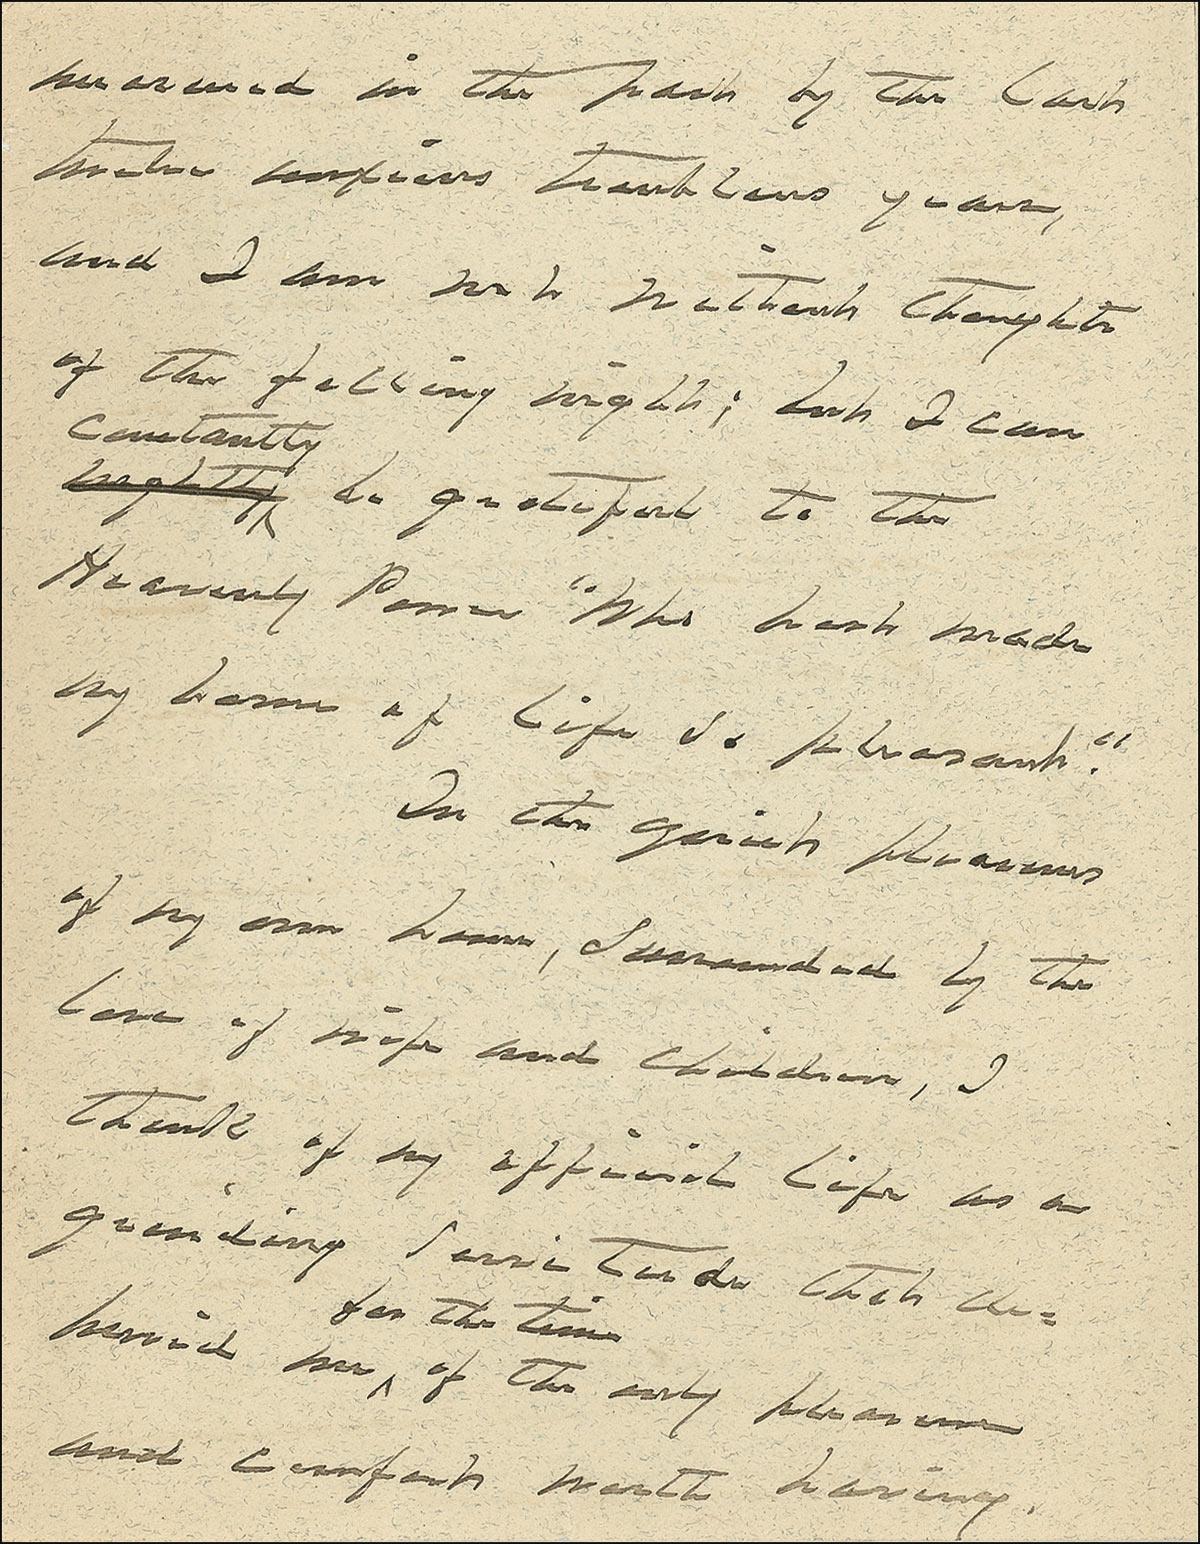 measured in the past by the last
twelve anxious troublous years,
and I am not without thoughts
of the falling night; but I can
constantly
be gratified to the
Heavenly Power "Who hast made
my home of life so pleasant".
In the quiet pleasures
of my own home, surrounded by the
love of wife and children, I
think of my official life as a
grinding servitude that de=
for the time
prived me ^ of the only pleasure
and comfort worth having.